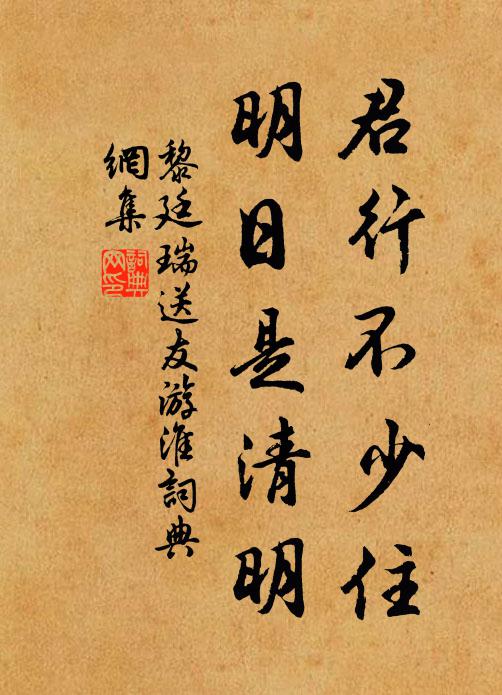 君行不少住
明日是清明
黎廷瑞送友游淮詞典
網集
詞典
网印